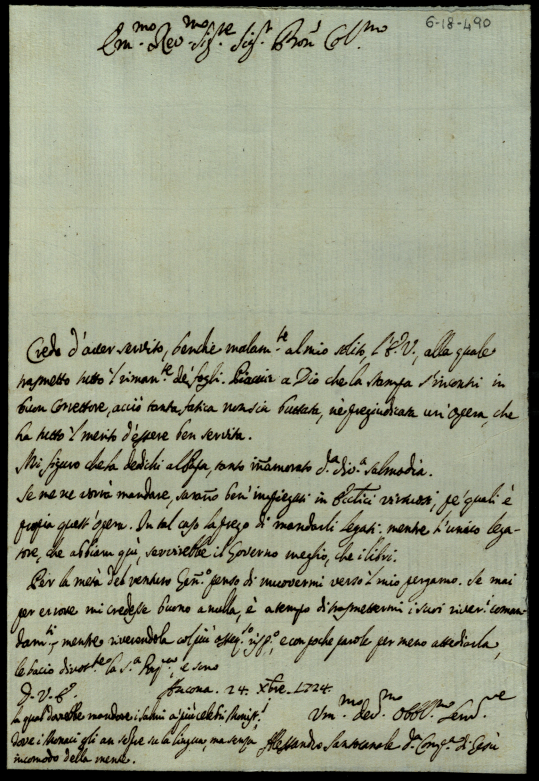 6-18-490
Em.mo Rev.mo Sig.re Sig.r Pron Col.mo
Credo d'aver servito, benche malam.te al mio solito, l'E. V., alla quale
trasmetto tutto 'l riman.te de' fogli. Piaccia a Dio che la stampa s'incontri in
buon correttore, acciò tanta fatica non sia buttata, ne pregiudicata un'Opera, che
ha tutto 'l merito d'essere ben servita.
Mi figuro che la dedichi al Papa, tanto innamorato d.a div.a Salmodia.
Se me ne vorrà mandare, saranno ben' impiegati in virtuosi, pe' quali è
propia quest'opera. In tal caso la prego di mandarli legati, mentre l'unico lega-
tore, che abbiam quì, servirebbe il Governo meglio, che i libri.
Per la metà del venturo Gen.o penso di muovermi verso 'l mio pergamo. Se mai
per errore mi credesse buono a nulla, è a tempo di trasmettermi i suoi river.i coman-
dam.ti, mentre riverendola col più osseq.so risp.o, e con poche parole per meno attediarla,
le bacio divot.te la S.a Porp.a, e sono
D. V. E.
Ancona. 24. Xbre. 1724.
la qual dovrebbe mandare i Salmi a' più celebri Monist.i
dove i Monaci gli an sempre su la lingua, ma senza
incomodo della mente.
Um.mo Dev.mo Obbl.mo Serv.re
Alessandro Santocanale d.a Comp.a di Gesù